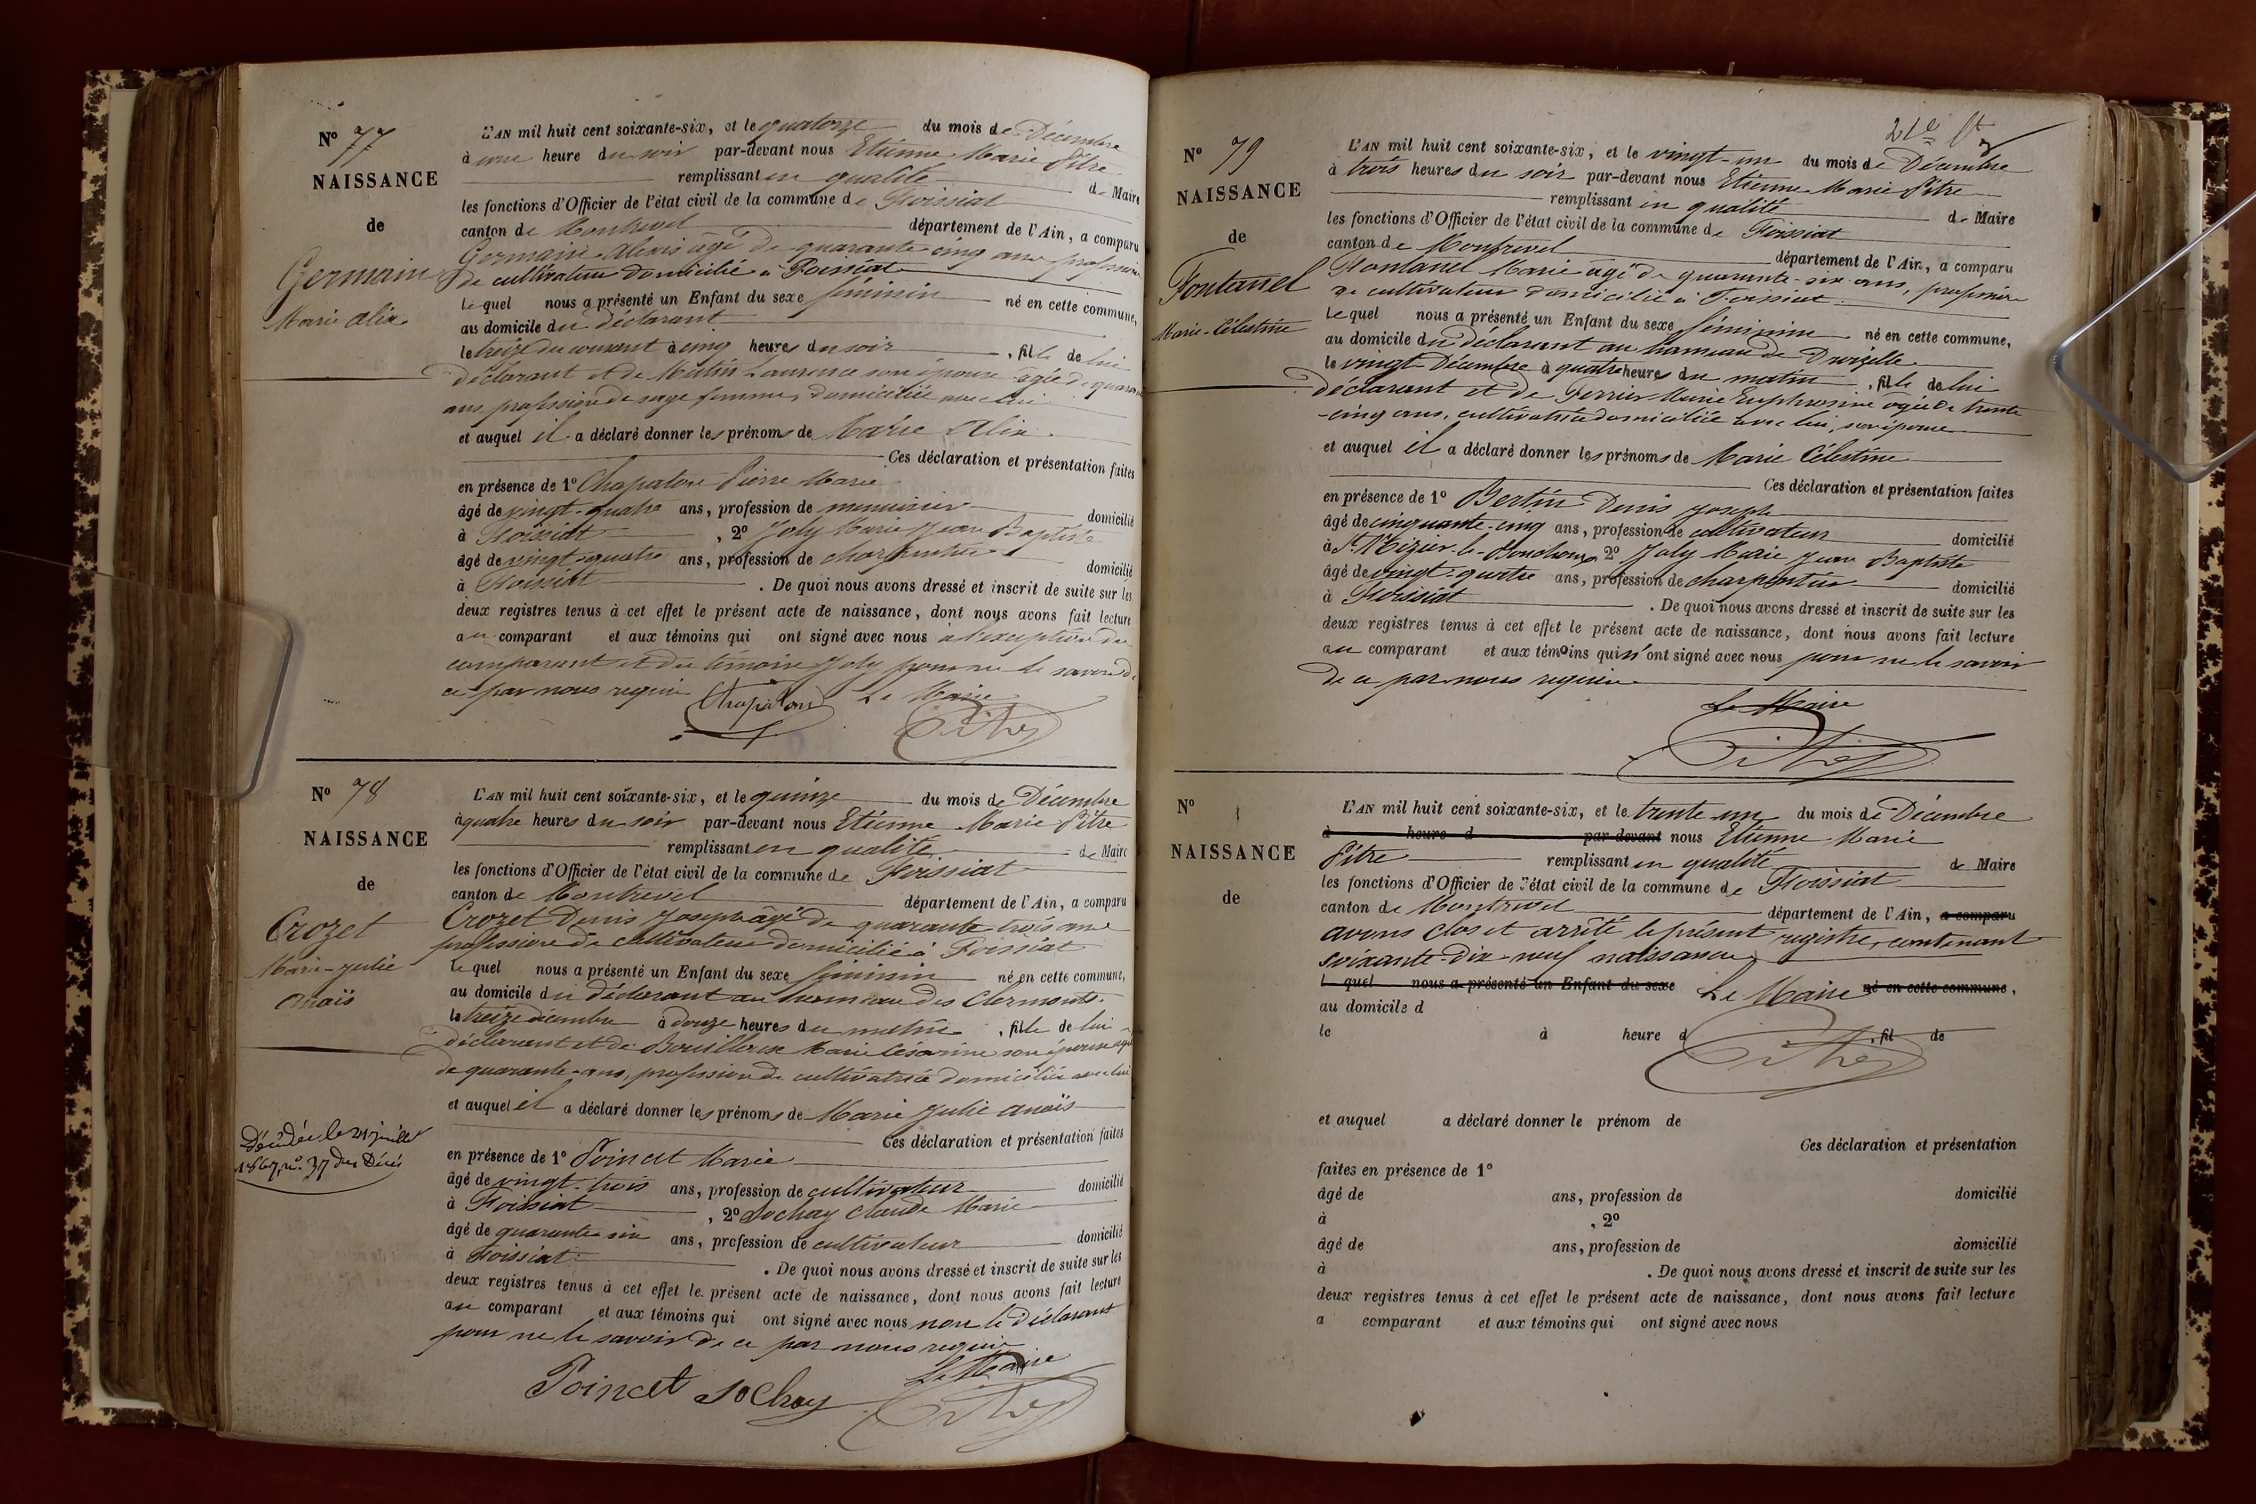 N° 77
NAISSANCE
de
Germain
Marie Alix
L'AN mil huit cent soixante-six, et le quatorze du mois de Décembre
à une heure du soir par-devant nous Etienne Marie Pitre
remplissant en qualité de Maire
les fonctions d'Officier de l'état civil de la commune de Foissiat
canton de Montrevel département de l'Ain, a comparu
Germain Alexis âgé de quarante cinq ans profession
de cultivateur domicilié à Foissiat
lequel nous a présenté un Enfant du sexe féminin né en cette commune,
au domicile du déclarant
le treize du courant à cinq heures du soir, fille de lui
déclarant et de Laurence son épouse âgée de
ans, profession de sage femme, domiciliée avec lui
et auquel il a déclaré donner les prénoms de Marie Alix
Ces déclaration et présentation faites
en présence de 1° Chapalon Pierre Marie
âgé de vingt-quatre ans, profession de menuisier domicilié
à Foissiat, 2° Joly Marie Jean Baptiste
âgé de vingt-quatre ans, profession de charpentier domicilié
à Foissiat. De quoi nous avons dressé et inscrit de suite sur les
deux registres tenus à cet effet le présent acte de naissance, dont nous avons fait lecture
au comparant et aux témoins qui ont signé avec nous à l'exception du
comparant et du témoin Joly pour ne le savoir de
ce par nous requis
Chapalon Le Maire
Pitre
N° 78
NAISSANCE
de
Crozet
Marie-Julie
Anaïs
Décédée le 21 juillet
1867, n° 37 des Décès
L'AN mil huit cent soixante-six, et le quinze du mois de Décembre
à quatre heures du soir par-devant nous Etienne Marie Pitre
remplissant en qualité de Maire
les fonctions d'Officier de l'état civil de la commune de Foissiat
canton de Montrevel département de l'Ain, a comparu
Crozet Denis Joseph âgé de quarante trois ans
profession de cultivateur domicilié à Foissiat
lequel nous a présenté un Enfant du sexe féminin né en cette commune,
au domicile du déclarant au hameau des Clermonts
le treize décembre à douze heures du matin, fille de lui
déclarant et de Marie Césarine son épouse âgée
de quarante ans, profession de cultivatrice domiciliée avec lui
et auquel il a déclaré donner les prénoms de Marie Julie Anaïs
Ces déclaration et présentation faites
en présence de 1° Poincet Marie
âgé de vingt-trois ans, profession de cultivateur domicilié
à Foissiat, 2° Sochay Claude Marie
âgé de quarante six ans, profession de cultivateur domicilié
à Foissiat. De quoi nous avons dressé et inscrit de suite sur les
deux registres tenus à cet effet le présent acte de naissance, dont nous avons fait lecture
au comparant et aux témoins qui ont signé avec nous non le déclarant
pour ne le savoir de ce par nous requis
Le Maire
Poincet Sochay Pitre
N° 79
NAISSANCE
de
Fontanel
Marie-Célestine
L'AN mil huit cent soixante-six, et le vingt-un du mois de Décembre
à trois heures du soir par-devant nous Etienne Marie Pitre
remplissant en qualité de Maire
les fonctions d'Officier de l'état civil de la commune de Foissiat
canton de Montrevel département de l'Ain, a comparu
Fontanel Marie âgé de quarante-six ans, profession
de cultivateur domicilié à Foissiat
lequel nous a présenté un Enfant du sexe féminin né en cette commune,
au domicile du déclarant au hameau de
le vingt Décembre à quatre heures du matin, fille de lui
déclarant et de Ferrier Marie Euphrosine âgée de trente
-cinq ans, cultivatrice domiciliée avec lui, son épouse
et auquel il a déclaré donner les prénoms de Marie Célestine
Ces déclaration et présentation faites
en présence de 1° Bertin Denis Joseph
âgé de cinquante-cinq ans, profession de cultivateur domicilié
à St Nizier-le-Bouchoux 2° Joly Marie Jean Baptiste
âgé de vingt-quatre ans, profession de charpentier domicilié
à Foissiat. De quoi nous avons dressé et inscrit de suite sur les
deux registres tenus à cet effet le présent acte de naissance, dont nous avons fait lecture
au comparant et aux témoins qui n'ont signé avec nous pour ne le savoir
de ce par nous requis
Le Maire
Pitre
N°
NAISSANCE
de
L'AN mil huit cent soixante-six, et le trente-un du mois de Décembre
à heure d par-devant nous Etienne Marie
Pitre remplissant en qualité de Maire
les fonctions d'Officier de l'état civil de la commune de Foissiat
canton de Montrevel département de l'Ain, a comparu
avons clos et arrêté le présent registre, contenant
soixante-dix-neuf naissances
l quel nous a présenté un Enfant du sexe Le Maire né en cette commune,
au domicile d
le à heure d, fil de
Pitre
et auquel a déclaré donner le prénom de
Ces déclaration et présentation
faites en présence de 1°
âgé de ans, profession de domicilié
à, 2°
âgé de ans, profession de domicilié
à. De quoi nous avons dressé et inscrit de suite sur les
deux registres tenus à cet effet le présent acte de naissance, dont nous avons fait lecture
a comparant et aux témoins qui ont signé avec nous